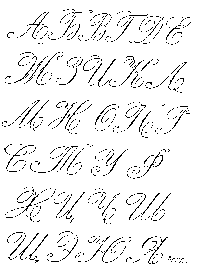 А Б В Г Д Е
Ж З И К Л
М Н О П Г
С Т У Ф
Х Ц Ч Ш
Щ Э Ю Я